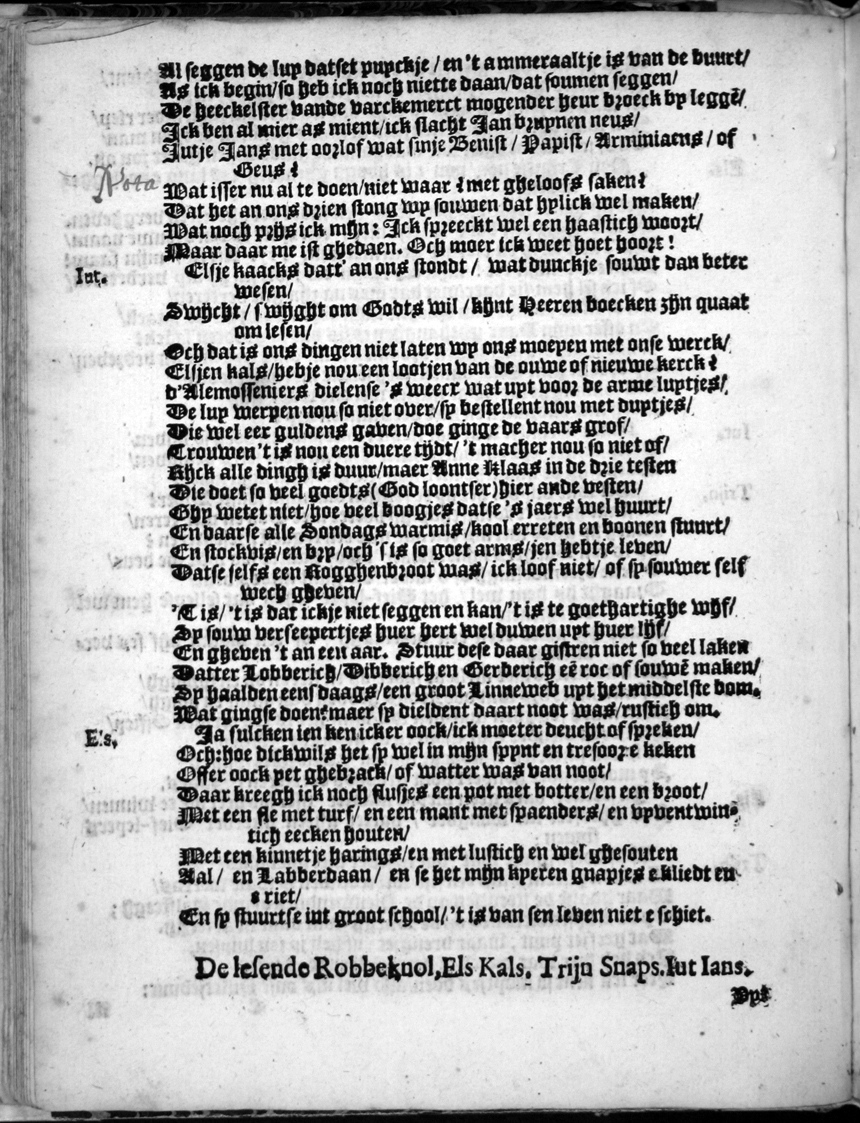 Al seggen de luy datset puyckje / en 't ammeraaltje is van de buurt/
As ick begin/so heb ick noch niette daan/dat soumen seggen/
De heeckelster vande varckemerct mogender heur broeck by leggē/
Ick ben al mier as mient/ick slacht Jan bruynen neus/
Jutje Jans met oorlof wat sinje Benist / Papist / Arminiaens / of
Geus?
Nota
Wat isser nu al te doen/niet waar? met gheloofs saken?
Dat het an ons drien stong wy souwen dat hylick wel maken/
Wat noch prijs ick mijn: Ick spreeckt wel een haastich woort/
Maar daar me ist ghedaen. Och moer ick weet hoet hoort!
Iut. Elsje kaacks datt' an ons stondt / wat dunckje souwt dan beter
wesen/
Swijcht / swijght om Godts wil / kijnt Heeren boecken zijn quaat
om lesen/
Och dat is ons dingen niet laten wy ons moeyen met onse werck/
Elsjen kals/hebje nou een lootjen van de ouwe of nieuwe kerck?
d'Alemosseniers dielense 's weecx wat uyt voor de arme luytjes/
De luy werpen nou so niet over/sy bestellent nou met duytjes/
Die wel eer guldens gaven/doe ginge de vaars grof/
Trouwen't is nou een duere tijdt/ 't macher nou so niet of/
Kijck alle dingh is duur/maer Anne Klaas in de drie testen
Die doet so veel goedts(God loontser)hier ande vesten/
Ghy wetet niet/hoe veel boogjes datse 's jaers wel huurt/
En daarse alle Sondags warmis/kool erreten en boonen stuurt/
En stockvis/en bry/och 's is so goet arms/jen hebtje leven/
Datse selfs een Rogghenbroot was/ ick loof niet/ of sy souwer self
wech gheven/
'T is/ 't is dat ickje niet seggen en kan/'t is te goethartighe wijf/
Sy souw verseepertjes huer hert wel duwen uyt huer lijf/
En gheven 't an een aar. Stuur dese daar gistren niet so veel laken
Datter Lobberich/Dibberich en Gerderich eē roc of souwē maken/
Sy haalden eens daags/een groot Linneweb uyt het middelste bom.
Wat gingse doen? maer sy dieldent daart noot was/rustich om.
Els. Ja sulcken ien ken icker oock/ick moeter deucht of spreken/
Och: hoe dickwils het sy wel in mijn spynt en tresoore keken
Offer oock yet ghebrack/of watter was van noot/
Daar kreegh ick noch flusjes een pot met botter/en een broot/
Met een sle met turf/ en een mant met spaenders/ en vyventwin-
tich eecken houten/
Met een kinnetje harings/en met lustich en wel ghesouten
Aal/ en Labberdaan/ en se het mijn kyeren gnapjes ekliedt en
e riet/
En sy stuurtse int groot school/'t is van sen leven niet e schiet.
De lesende Robbeknol, Els Kals. Trijn Snaps. Iut Ians.
Uyt